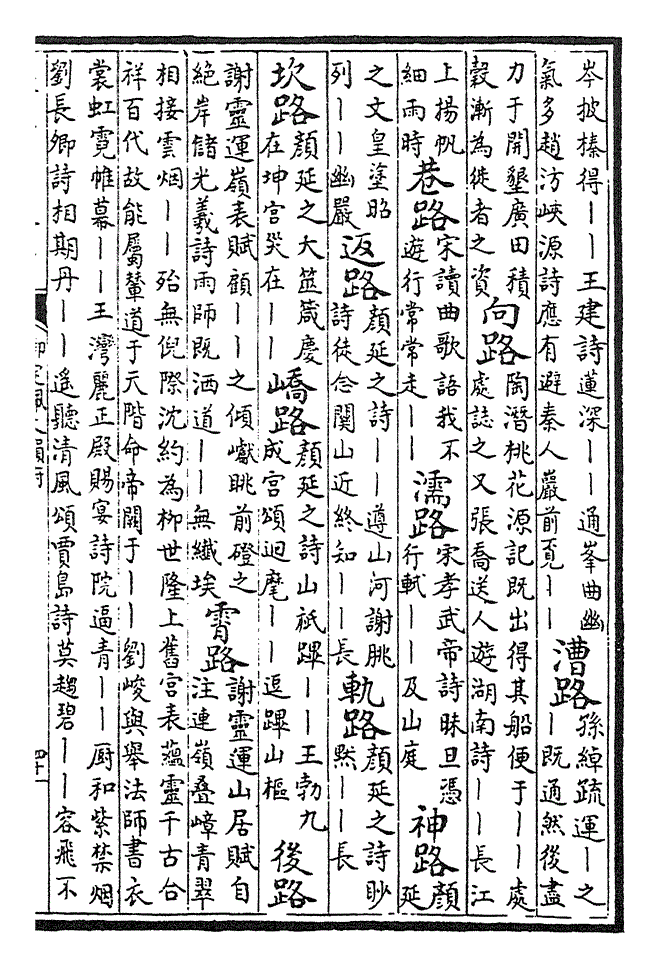 岑披榛得——王建詩蓮深——通峯曲幽
氣多趙汸峽源詩應有避秦人巖前覔——
漕路
孫綽疏運—之
—既通然後盡
力于開墾廣田積
穀漸為徙者之資
向路
陶潛桃花源記既出得其船便于——處
處誌之又張喬送人遊湖南詩——長江
上揚帆
細雨時
巷路
宋讀曲歌語我不
遊行常常走——
濡路
宋孝武帝詩昧旦憑
行軾——及山庭
神路
顏
延
之文皇塗昭
列——幽嚴
返路
顏延之詩——遵山河謝朓
詩徒念關山近終知——長
軌路
顏延之詩眇
默——長
坎路
顏延之大筮箴慶
在坤宮災在——
嶠路
顏延之詩山祇蹕——王勃九
成宮頌迴麾——逗蹕山樞
後路
謝靈運嶺表賦顧——之傾巘眺前磴之
絕岸儲光羲詩雨師既洒道——無纖埃
霄路
謝靈運山居賦自
注連嶺疊嶂青翠
相接雲烟——殆無倪際沈約為柳世隆上舊宮表蘊靈千古合
祥百代故能屬輦道于天階命帝闕于——劉峻與舉法師書衣
裳虹霓帷幕——王灣麗正殿賜宴詩院逼青——厨和紫禁烟
劉長卿詩相期丹——遙聽清風頌賈島詩莫趨碧——容飛不